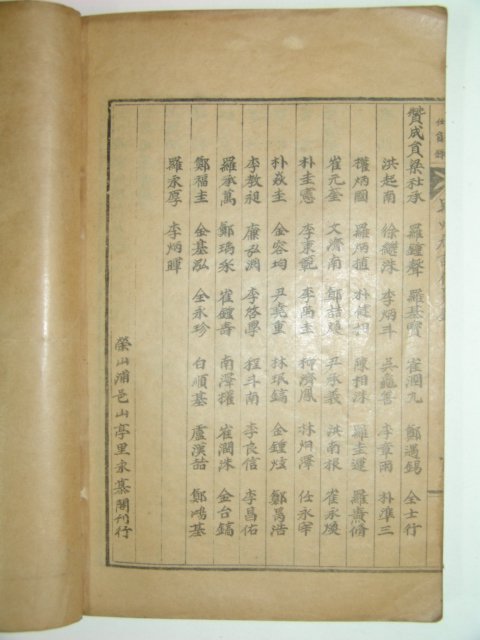 任員錄
贊成員梁社承 羅鍾聲 羅基寶 崔潤九 鄭遇錫 金士行
洪起南 徐繼洙 李炳斗 吳龜善 李章雨 朴準三
權炳國 羅炳植 朴健相 陳相洙 羅圭運 羅燾脩
崔元奎 文濟南 鄭喆煥 尹永義 洪南根 崔永燒
朴圭憲 李東說 李萬圭 柳濟鳳 林炯澤 任永宰
朴焱圭 金容均 尹堯重 林珉鎬 金鍾炫 鄭昺浩
李教昶 廉弘潤 李啓學 程斗南 李良信 李昌佑
羅承萬 鄭瑀采 崔鍾壽 南澤耀 崔潤洙 金台鎬
鄭福圭 金基泓 金永珍 白順基 盧漢喆 鄭鴻基
羅永厚 李炳暉
榮山浦邑山亭里永慕閣刊行